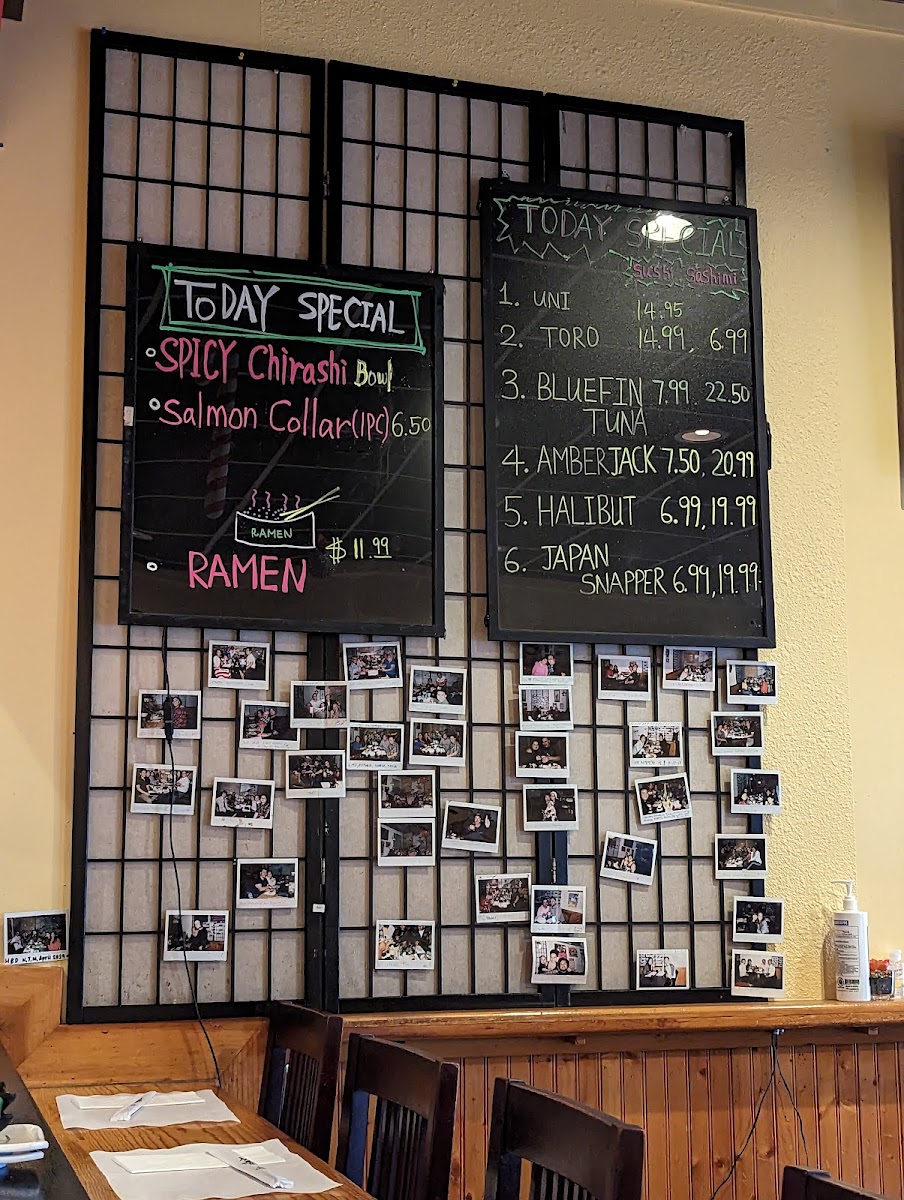 TODAY SPECIAL
SPICY Chirashi Bowl
Salmon Collar (1PC) 6.50
RAMEN
$ 11.99
RAMEN
TODAY SPECIAL
Sushi Sashimi
1. UNI 14.95
2. TORO 14.99, 6.99
3. BLUEFIN 7.99. 22.50
TUNA
4. AMBERJACK 7.50, 20.99
5. HALIBUT 6.99, 19.99
6. JAPAN
SNAPPER 6.99, 19.99